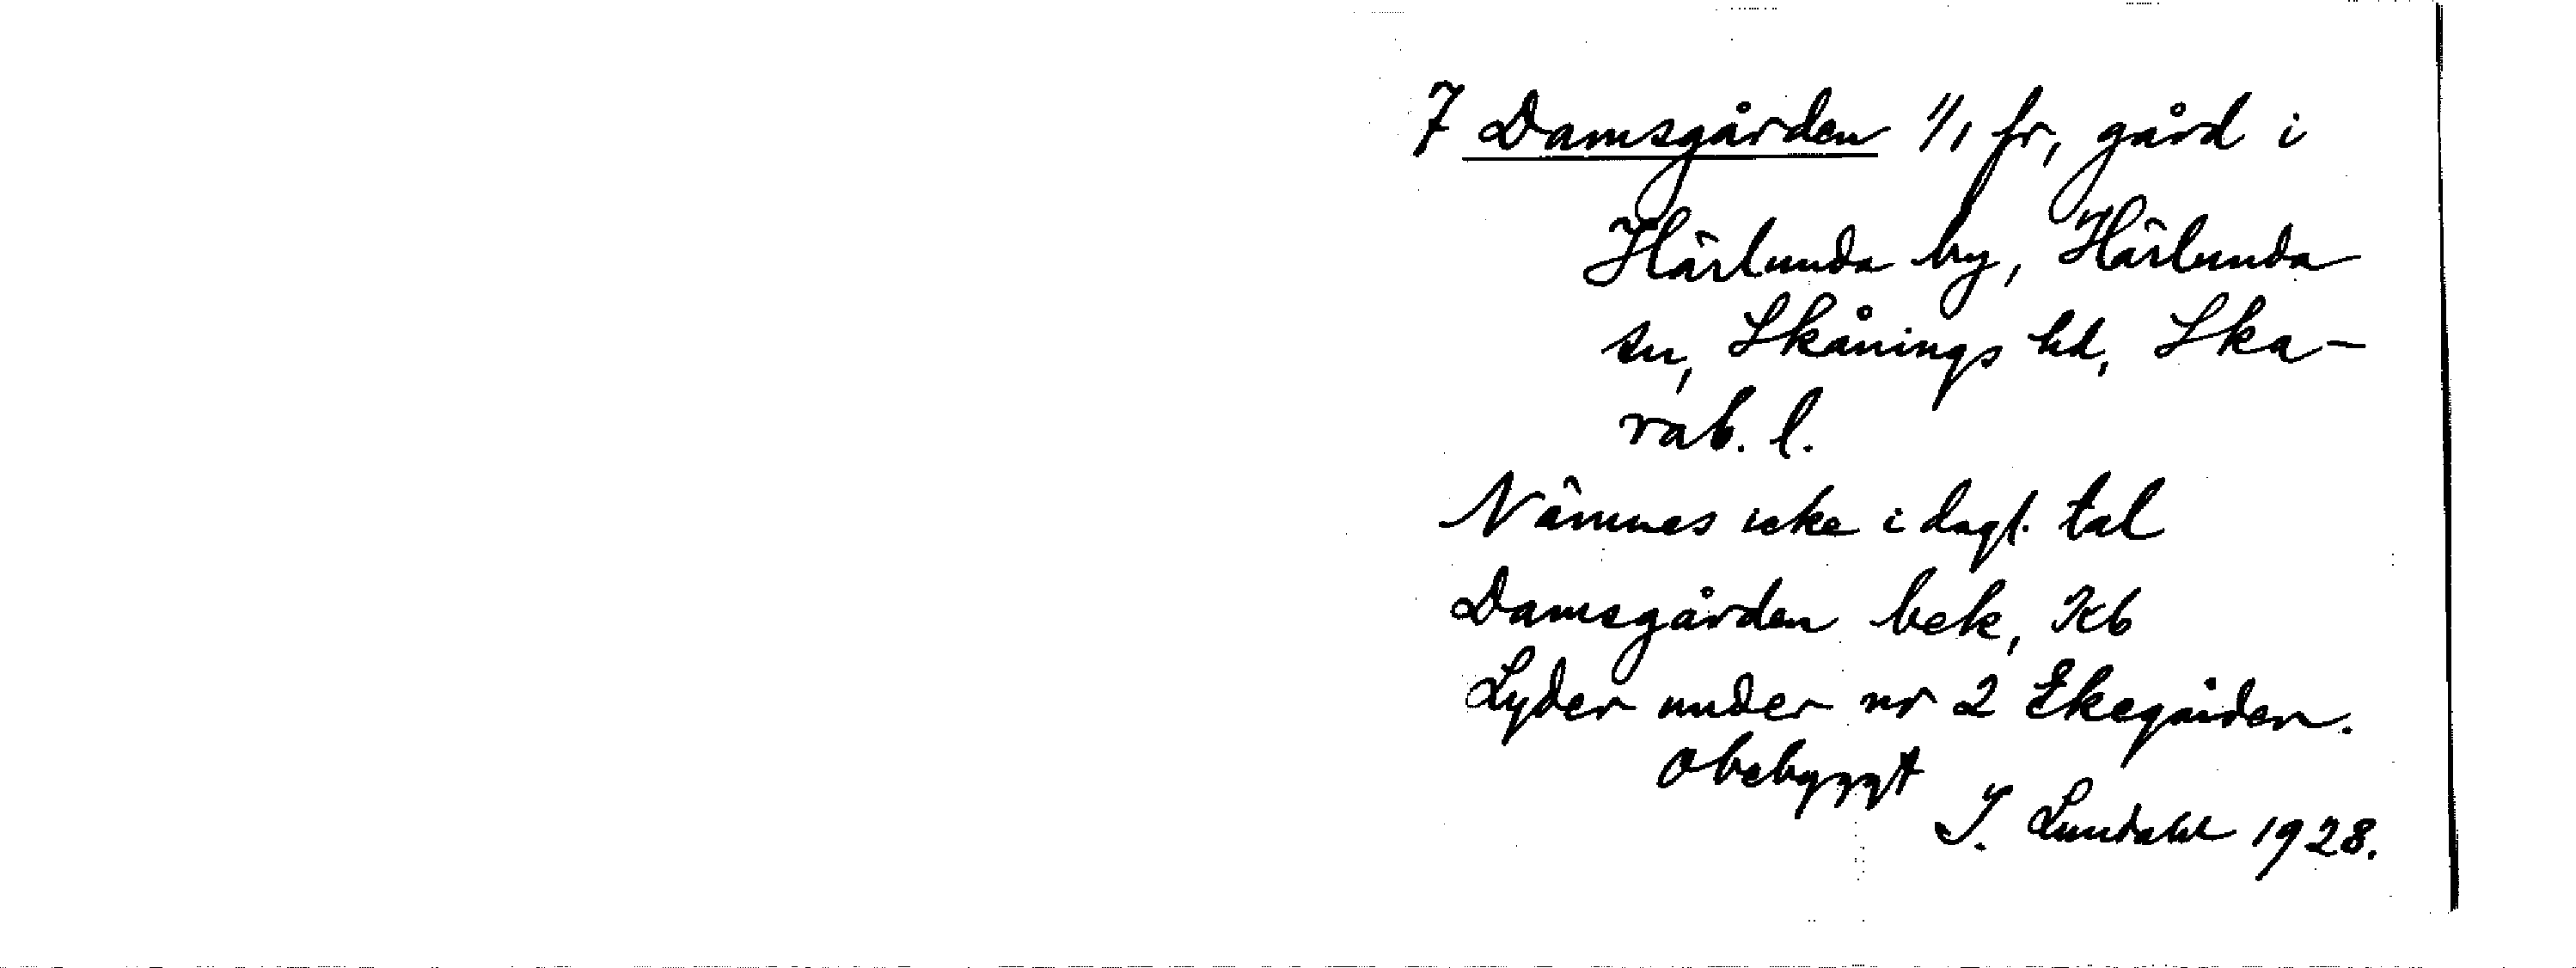 7 Damsgården 1/1 fr, gård i
Härlunda by, Härlunda
sn, Skånings hd, Ska-
rab. l.
Nämnes icke i dagl. tal
Damsgården bek, Kb
Lyder under nr 2 Ekegården.
Obebyggt
I. Lundahl 1928.